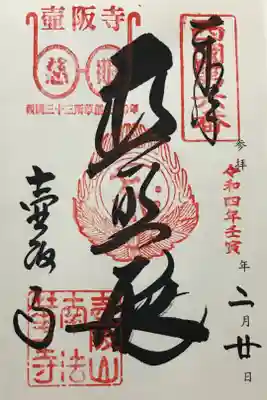 奉拝
西国第六番
参拝 令和四年壬寅年二月廿日
普照殿
壷阪寺
慈悲
西国三十三所草創
壷阪寺
壷阪山
南法
華寺